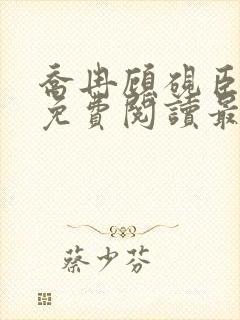 喬冉顧硯臣
免費閱讀最
蔡少芬